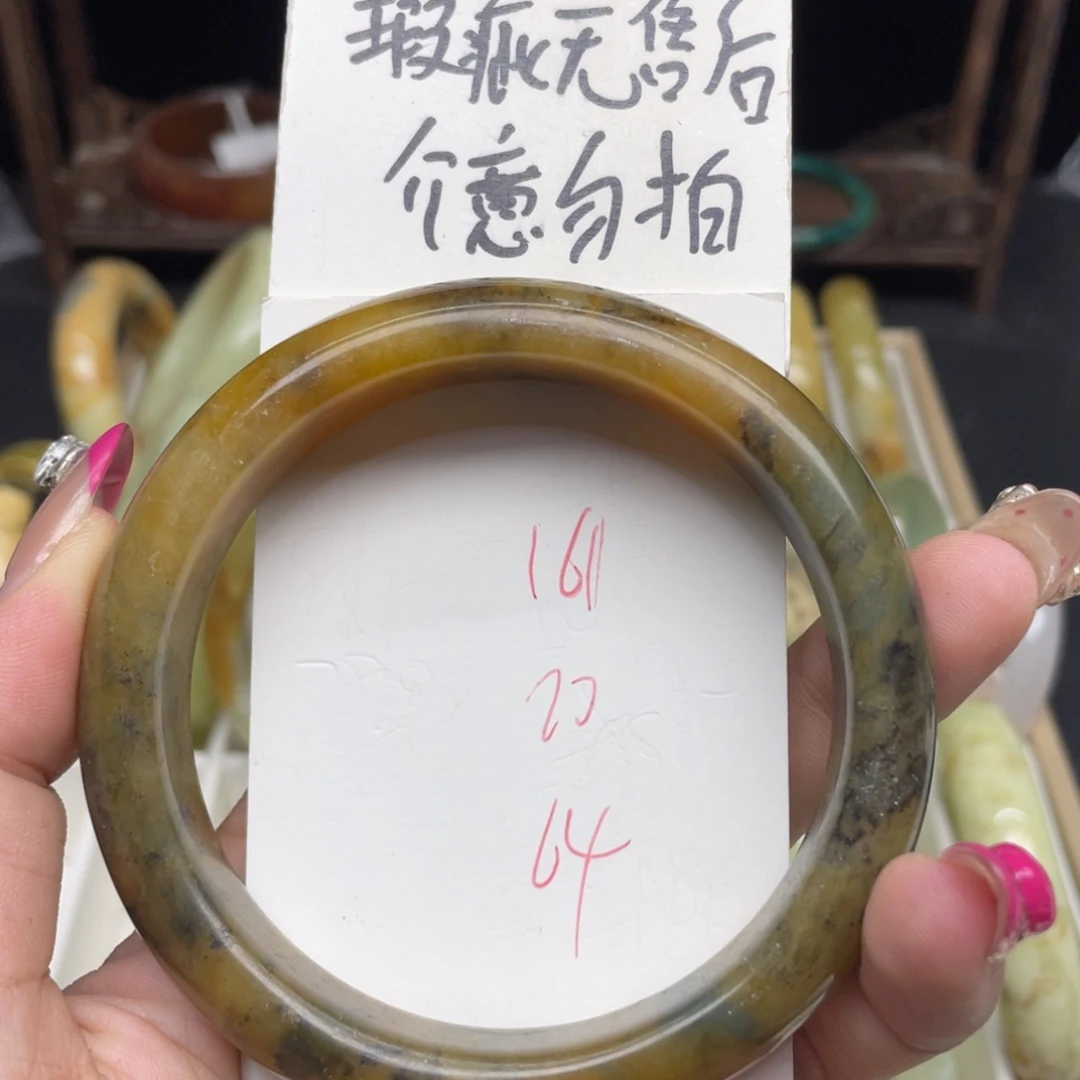 瑕疵无售后
介意勿拍
161
20
64